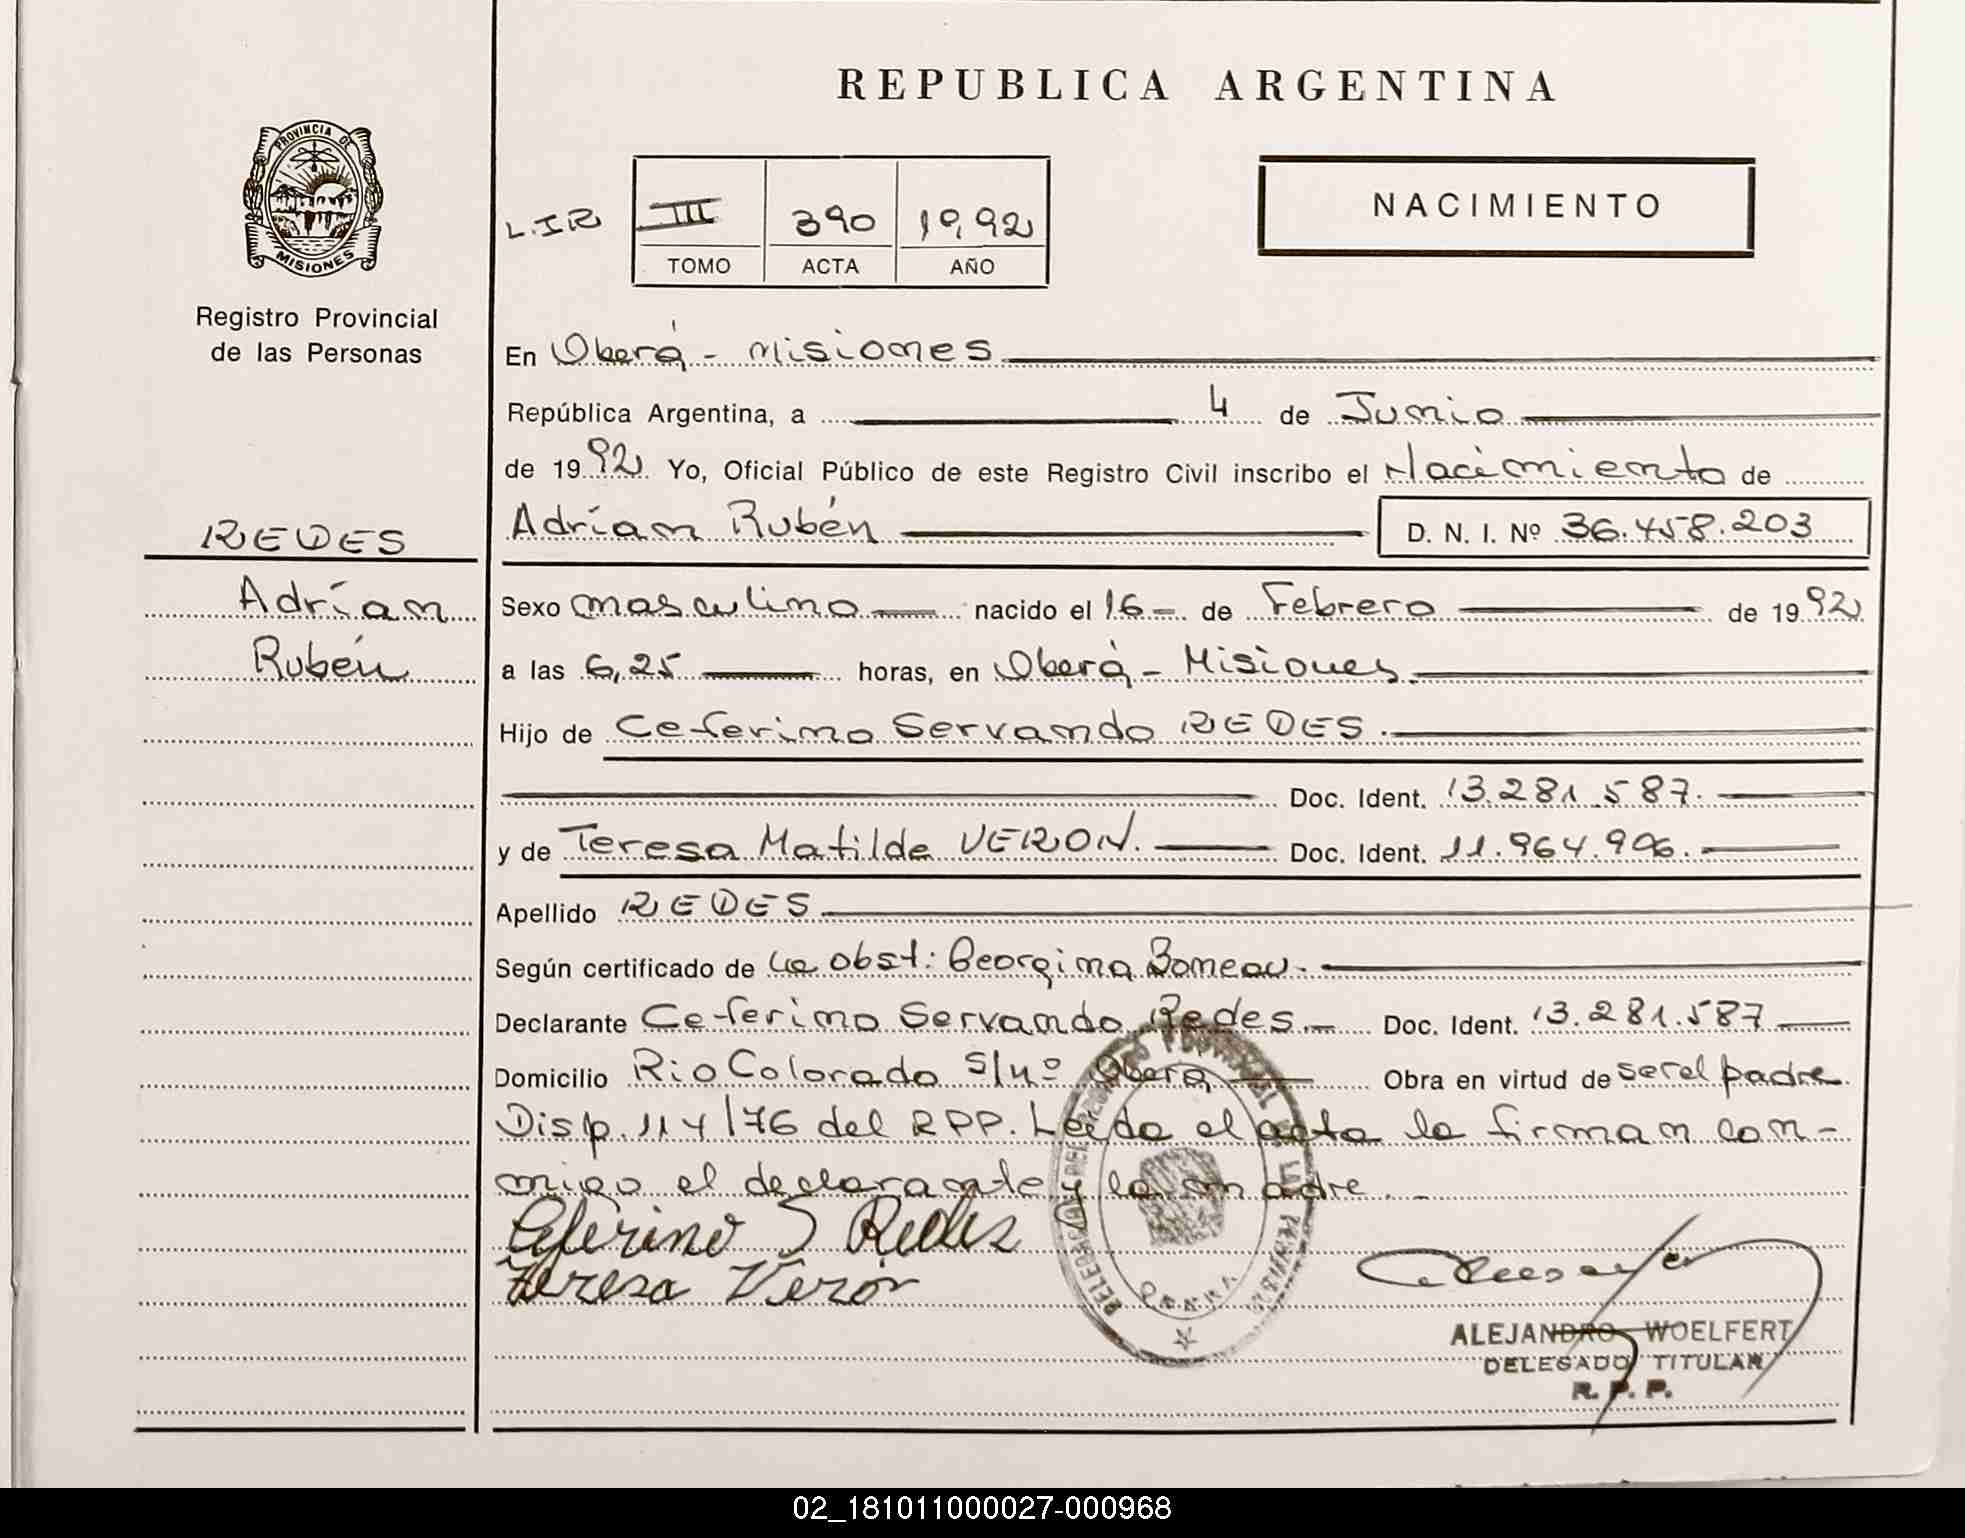 REPUBLICA ARGENTINA
PROVINCIA DE
MISIONES
Registro Provincial
de las Personas
L.IR
III 390 19,92
TOMO ACTA AÑO
NACIMIENTO
En Oberá - Misiones
República Argentina, a 4 de Junio
de 1992 Yo, Oficial Público de este Registro Civil inscribo el Nacimiento de
Adrían Rubén D. N. I. Nº 36.458.203
REDES
Adrían
Rubén
Sexo masculino nacido el 16 de Febrero de 1992
a las 6,25 horas, en Oberá - Misiones.
Hijo de Ceferino Servando REDES.
Doc. Ident. 13.281.587.
y de Teresa Matilde VERON. Doc. Ident. 11.964.906.
Apellido REDES
Según certificado de la obst: Georgina Boneau.
Declarante Ceferino Servando Redes. Doc. Ident. 13.281.587
Domicilio Rio Colorado s/nº Oberá Obra en virtud de ser el padre
Disp. 114/76 del RPP. Leída el acta la firman con-
migo el declarante y la madre.
Ceferino S Redes
Teresa Verón
OBERA
ALEJANDRO WOELFERT
DELEGADO TITULAR
R. P. P.
02_181011000027-000968